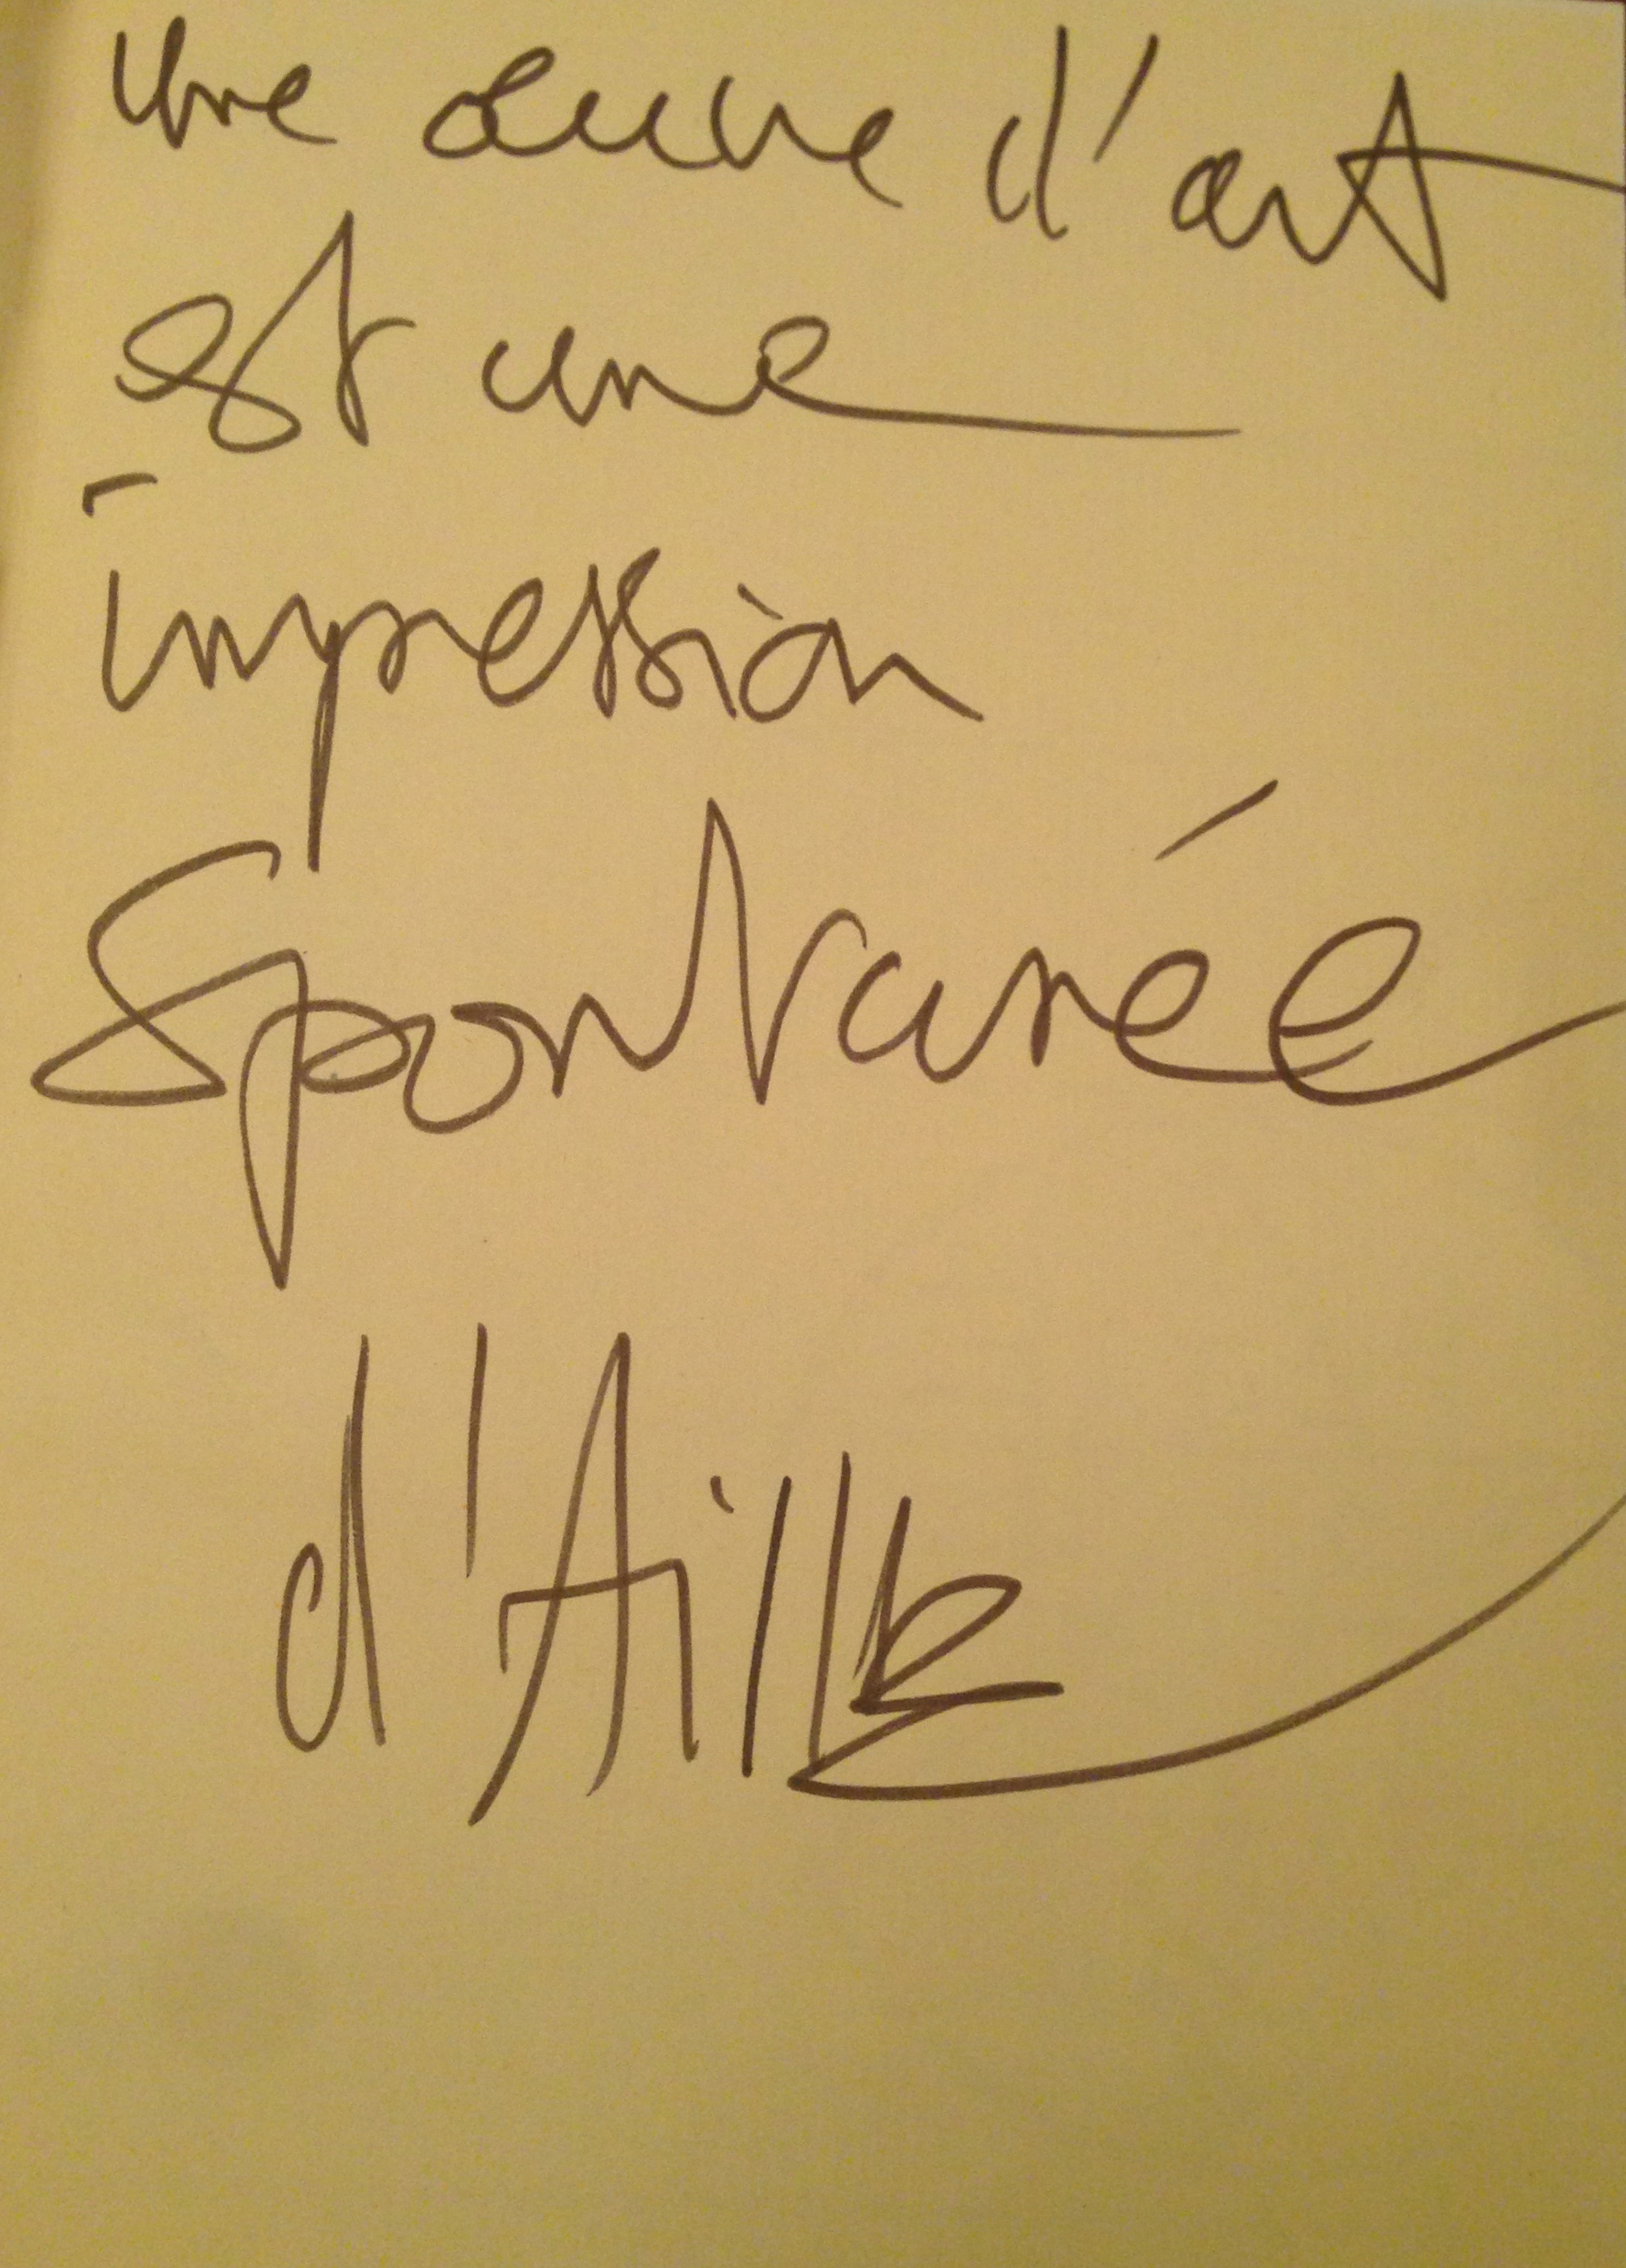 une œuvre d'art
est une
impression
Spontanée
d'Aillk